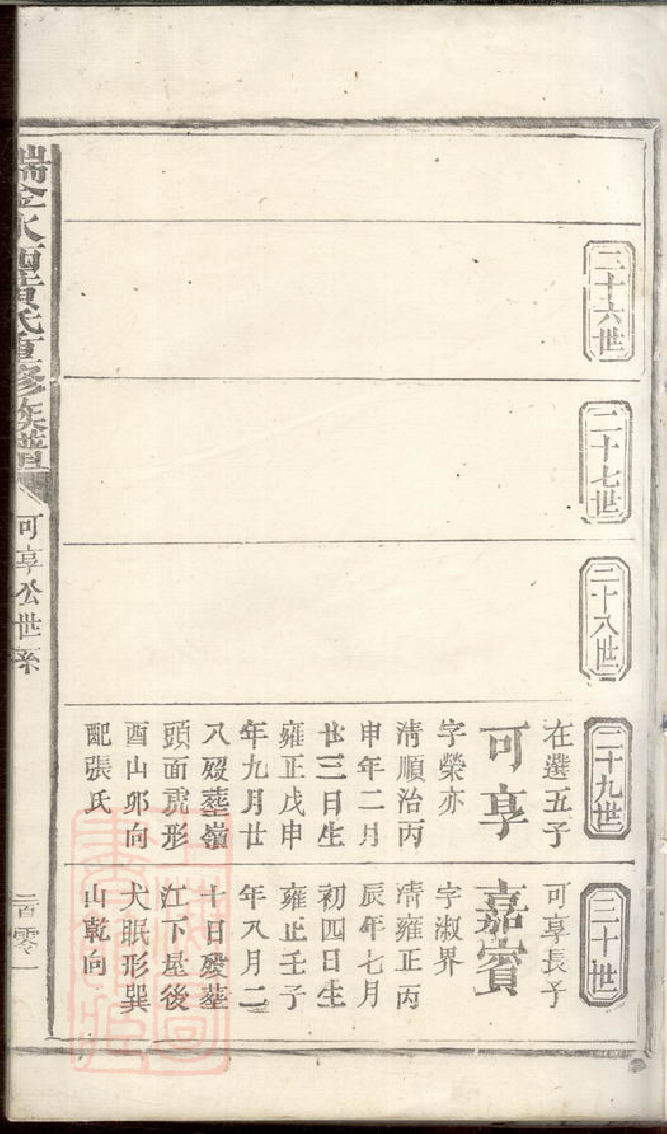 二十六世
二十七世
二十八世
二十九世
在選五子
可享
字榮亦
清順治丙
申年二月
廿三日生
雍正戊申
年九月廿
八歿葬嶺
頭面虎形
酉山卯向
配張氏
三十世
可享長子
嘉賓
字淑界
清雍正丙
辰年七月
初四日生
雍正壬子
年八月二
十日歿葬
江下屋後
犬眠形巽
山乾向
瑞金水西黄氏重修族譜
可享公世系